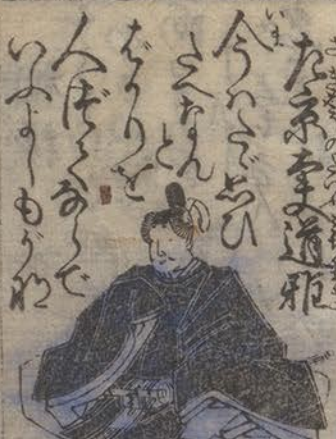 左京大夫道雅
今ハたゞ思ひ
たへなん
と
ばかりを
人づてならで
いふよしもがな